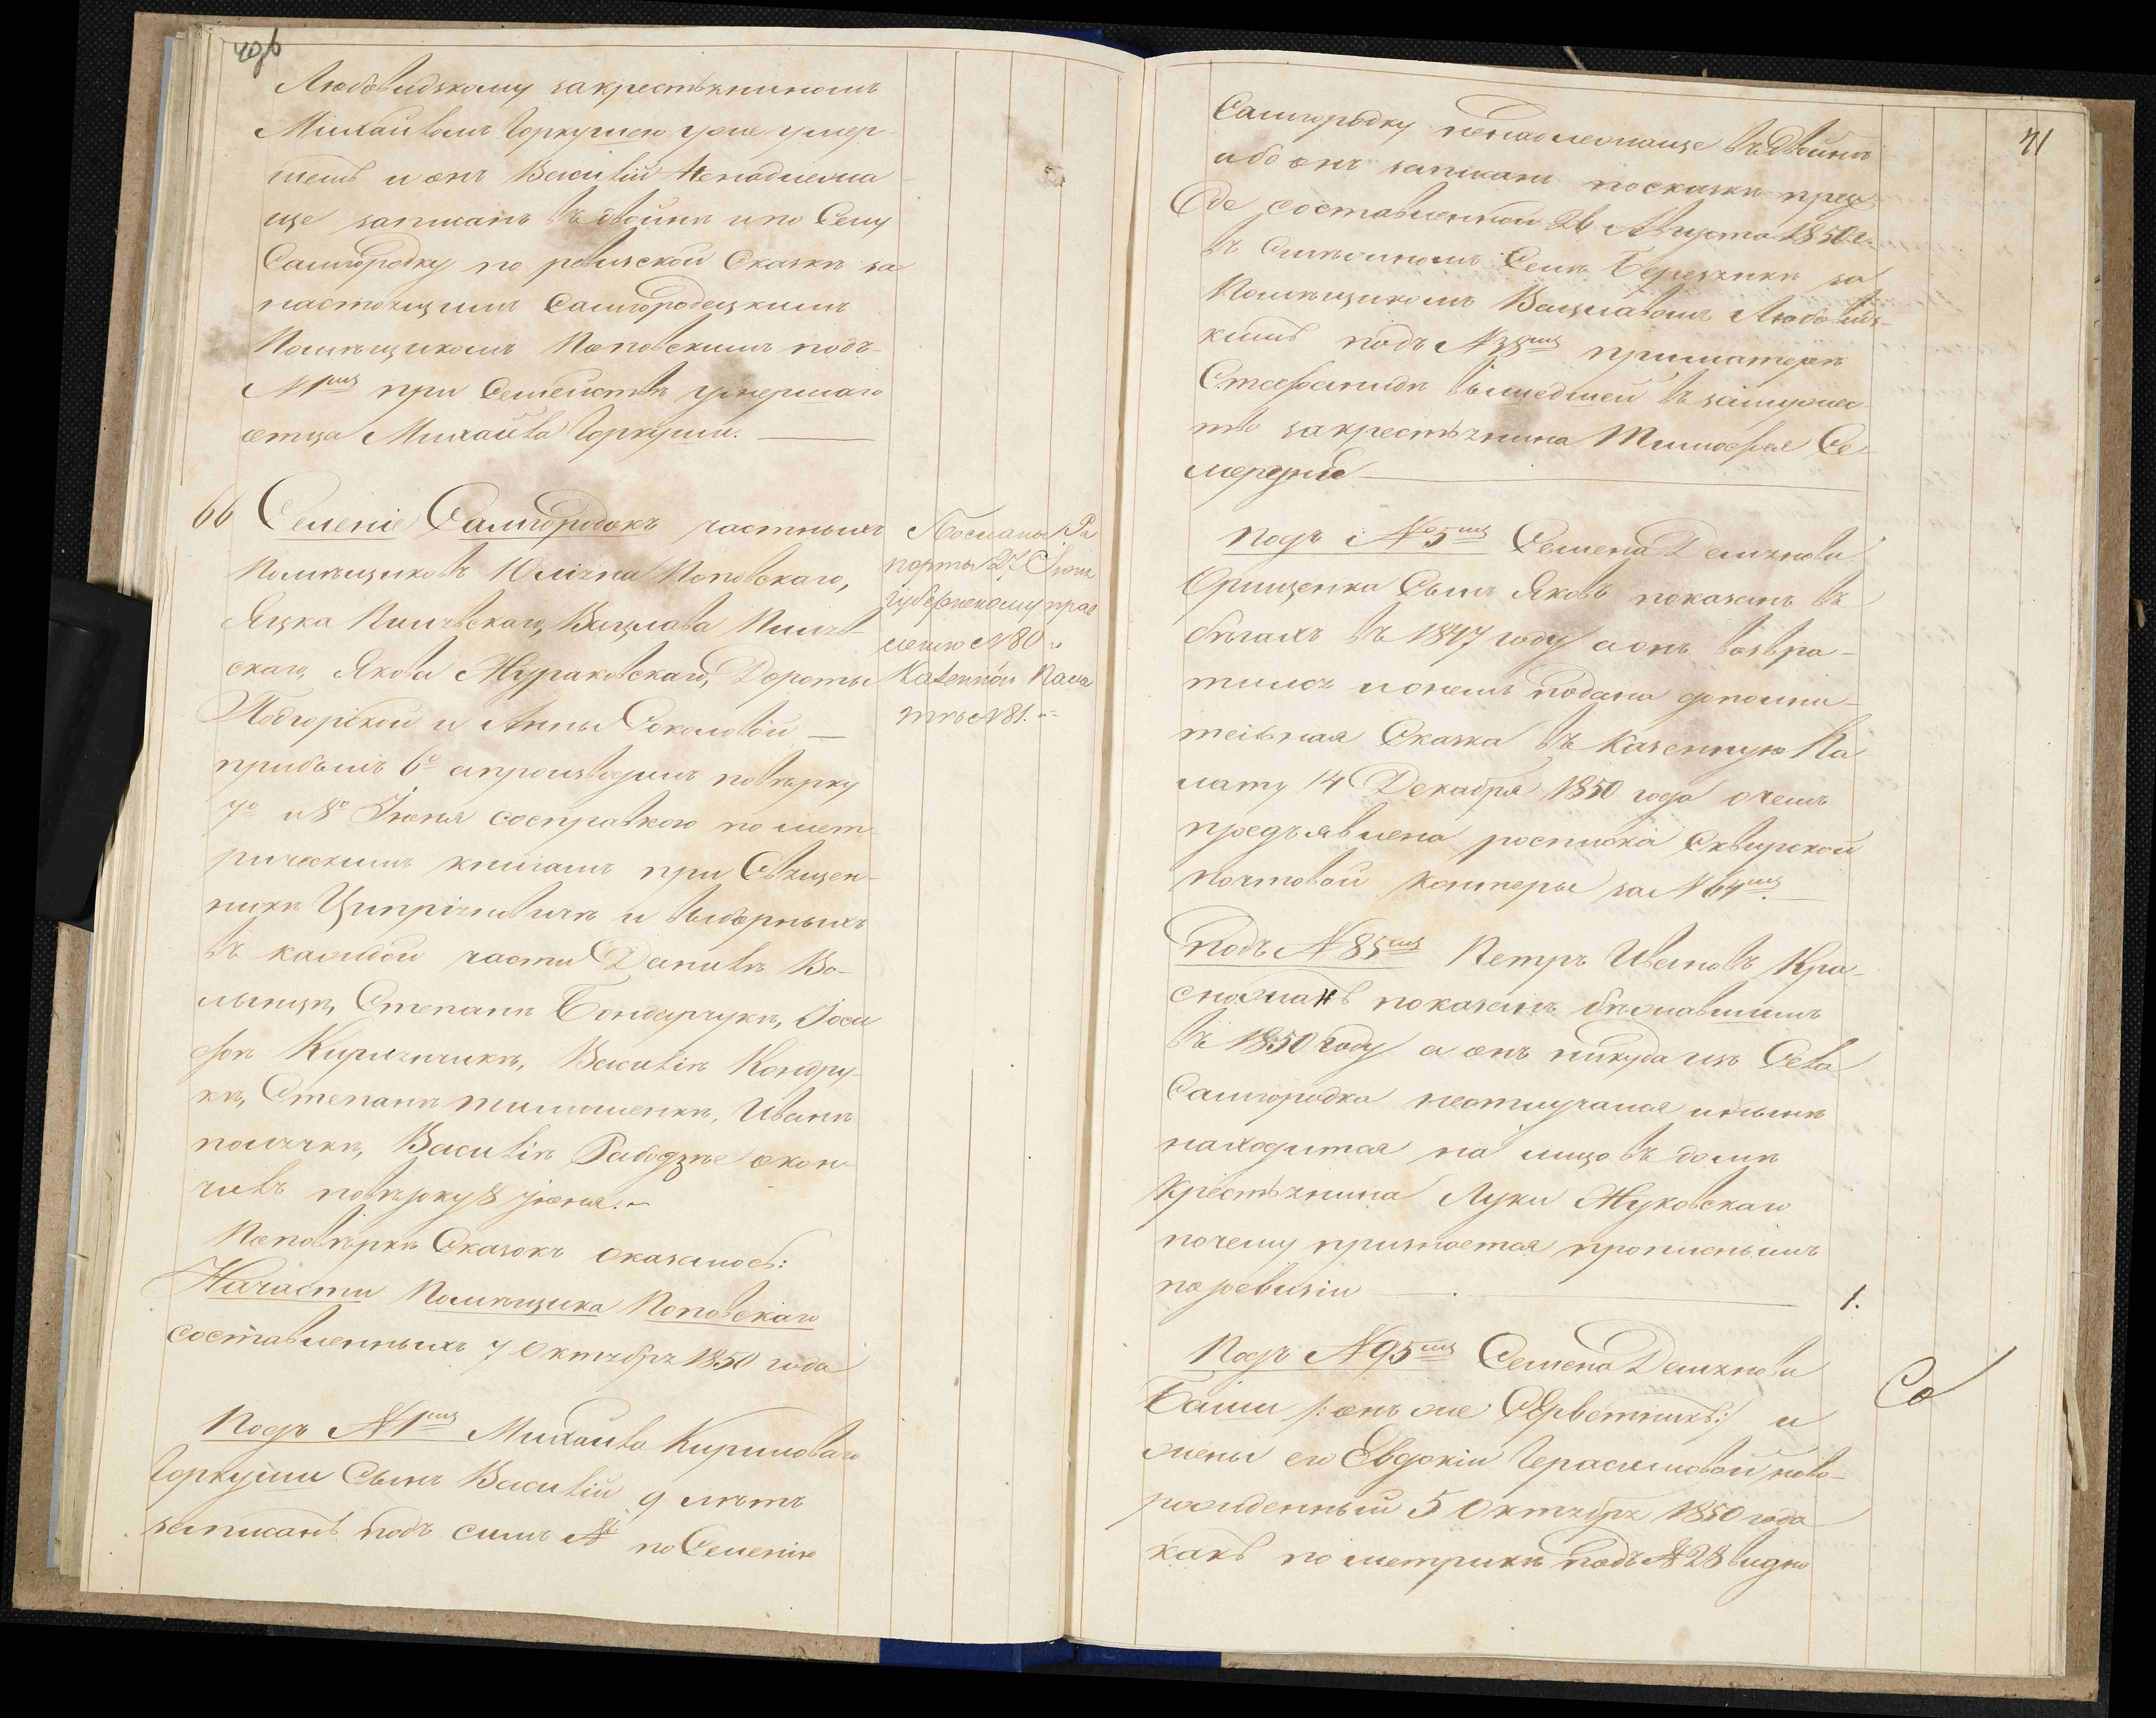 Любовидзкому за крестьяниномъ
Михайломъ Горкушею уже умер
шемъ и онъ Василій ненадлежа-
ще записанъ въ двойнѣ и по Селу
Самгородку по ревизской Сказкѣ за
настоящимъ Самгородецкимъ
Помѣщикомъ Поповскимъ подъ
№ 1мъ при Семействѣ умершаго
отца Михайла Горкуши.
66 Селеніе Самгородокъ частныхъ
Помѣщиковъ Юліяна Поповскаго,
Яцка Пилявскаго, Вацлава Пиляв-
скаго, Якова Жураковскаго, Дороты
Подгорской и Анны Соколовой —
прибылъ 6го а производилъ повѣрку
7го и 8го Іюня со справкою по мет
рическимъ книгамъ при Священ-
никѣ Ципріяновичѣ и выборныхъ
въ каждой части Данилѣ Во-
лынцѣ, Степанѣ Бондарчукѣ, Іоси
фѣ Кирлячикѣ, Василіѣ Кондру-
кѣ, Степанѣ тимошенкѣ, Иванѣ
полячкѣ, Василіѣ окон-
чивъ повѣрку 8 іюня.
По повѣркѣ Сказокъ оказалось:
На части Помѣщика Поповскаго
составленныхъ 7 Октября 1850 года
Подъ № 1мъ Михайла Кирилового
Горкуши Сынъ Василій 9 лѣтъ
записанъ подъ симъ № по Селенію
Посланы Ра
порты 27 Іюня
Губернскому прав
ленію № 80 и
Казенной Пала
тѣ № 81.
71
Самгородку ненадлежаще въ двойнѣ
ибо онъ записанъ по сказкѣ преж
де составленной 26 Августа 1850 г.
въ Селѣ Березянкѣ за
Помѣщикомъ Вацлавомъ Любовидз-
кимъ подъ № 38мъ при матерѣ
Стефанидѣ вышедшей въ замужес-
тво за крестьянина Тимофея Се-
мергния
Подъ № 5мъ Семена Демянова
Орищенка Сынъ Яковъ показанъ въ
бѣгахъ въ 1847 году а онъ возвра-
тился и о немъ подана дополни-
тельная Сказка въ Казенную Па
лату 14 Декабря 1850 года о чемъ
предъявлена росписка Сквирской
почтовой Конторы за № 64мъ.
Подъ № 85мъ Петръ Ивановъ Кра-
сножанъ показанъ бѣжавшимъ
въ 1850 году а онъ никуда изъ Села
Самгородка неотлучался и нынѣ
находится на лицо въ домѣ
Крестьянина Луки Жуковскаго
почему признается прописнымъ
по ревизіи 1.
Подъ № 95мъ Семена Демянова
Баши /: онъ же :/ и
жены его Евдокіи Герасимовой ново-
рожденный 5 Октября 1850 года
какъ по метрикѣ подъ № 28 видно